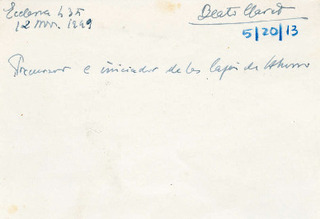 Ecclesia 435
12 nov. 1949
Beato Claret
5/20/13
Precursor e iniciador de las Cajas de Ahorro